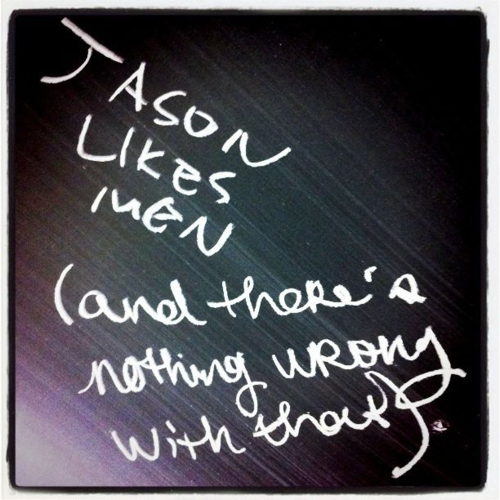 JASON
LIKES
MEN
(and there's
nothing wrong
with that)